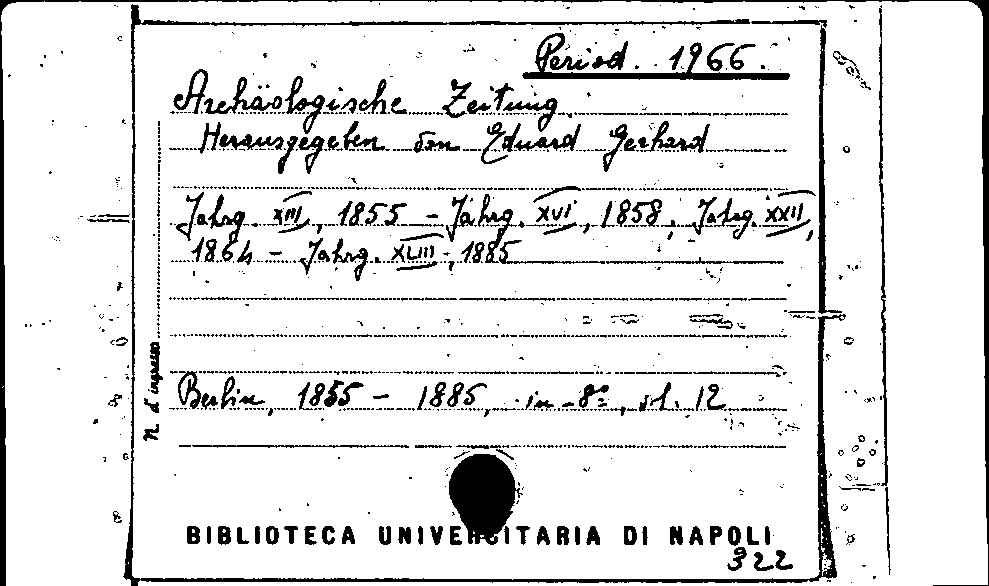 Period. 1966.
Archäologische Zeitung
Herausgegeben von Eduard Gerhard
Jahrg. XIII, 1855 - Jahrg. XVI, 1858; Jahrg. XXII,
1864 - Jahrg. XLIII, 1885
N. d'ingresso
Berlin, 1855 - 1885, in-8º, vl. 12
BIBLIOTECA UNIVERSITARIA DI NAPOLI
322